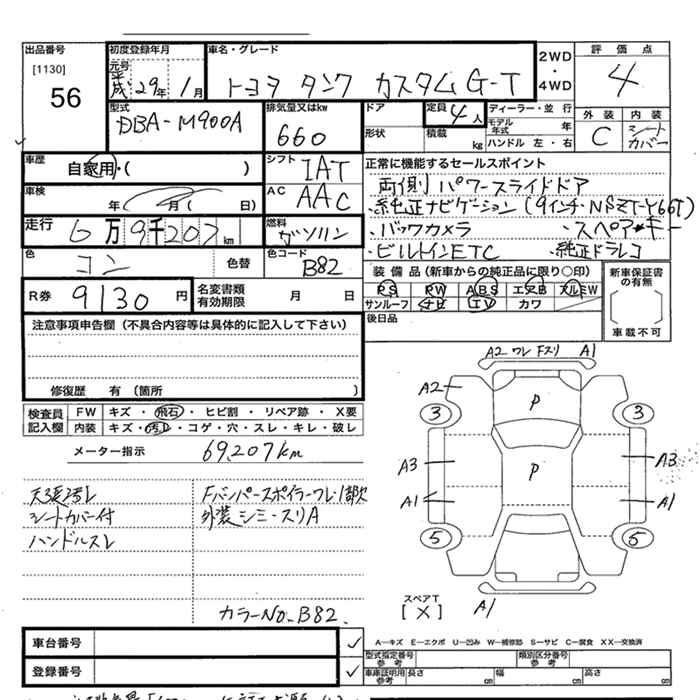 出品番号
[1130]
56
初度登録年月
元号
平成 29年 1月
車名・グレード
トヨタ タンク カスタムG-T
2WD
・
4WD
評価点
4
型式
DBA-M900A
排気量又はkw
660
ドア
形状
定員
4人
積載
kg
ディーラー・並行
モデル年式 年
ハンドル 左・右
外装
C
内装
シートカバー
車歴
自家用・( )
シフト
IAT
正常に機能するセールスポイント
両側パワースライドドア
・純正ナビゲーション(9インチ・NSZT-Y66T)
・バックカメラ ・スペアキー
・ビルトインETC ・純正ドラレコ
車検
年 月( 日)
AC
AAC
走行
6万9千207km
燃料
ガソリン
色
コン
色替
色コード
B82
R券
9130円
名変書類有効期限
月 日
装備品(新車からの純正品に限り○印)
PS PW ABS エアB アルミW
サンルーフ ナビ TV カワ
後日品
新車保証書の有無
車載不可
注意事項申告欄(不具合内容等は具体的に記入して下さい)
修復歴 有(箇所 )
検査員記入欄
FW キズ・飛石・ヒビ割・リペア跡・X要
内装 キズ・汚れ・コゲ・穴・スレ・キレ・破レ
メーター指示
69,207km
天張汚レ
シートカバー付
ハンドルスレ
Fバンパースポイラーワレ・1部欠
外装シミ・スリA
カラーNo.B82.
A2 ワレ Fスリ A1
A2
P
3
3
A3
P
A3
A1
A1
5
5
スペアT
[X]
A1
車台番号
登録番号
A―キズ E―エクボ U―凹み W―補修跡 S―サビ C―腐食 XX―交換済
型式指定番号参考
類別区分番号参考
車庫証明用参考
長さ cm
幅 cm
高さ cm